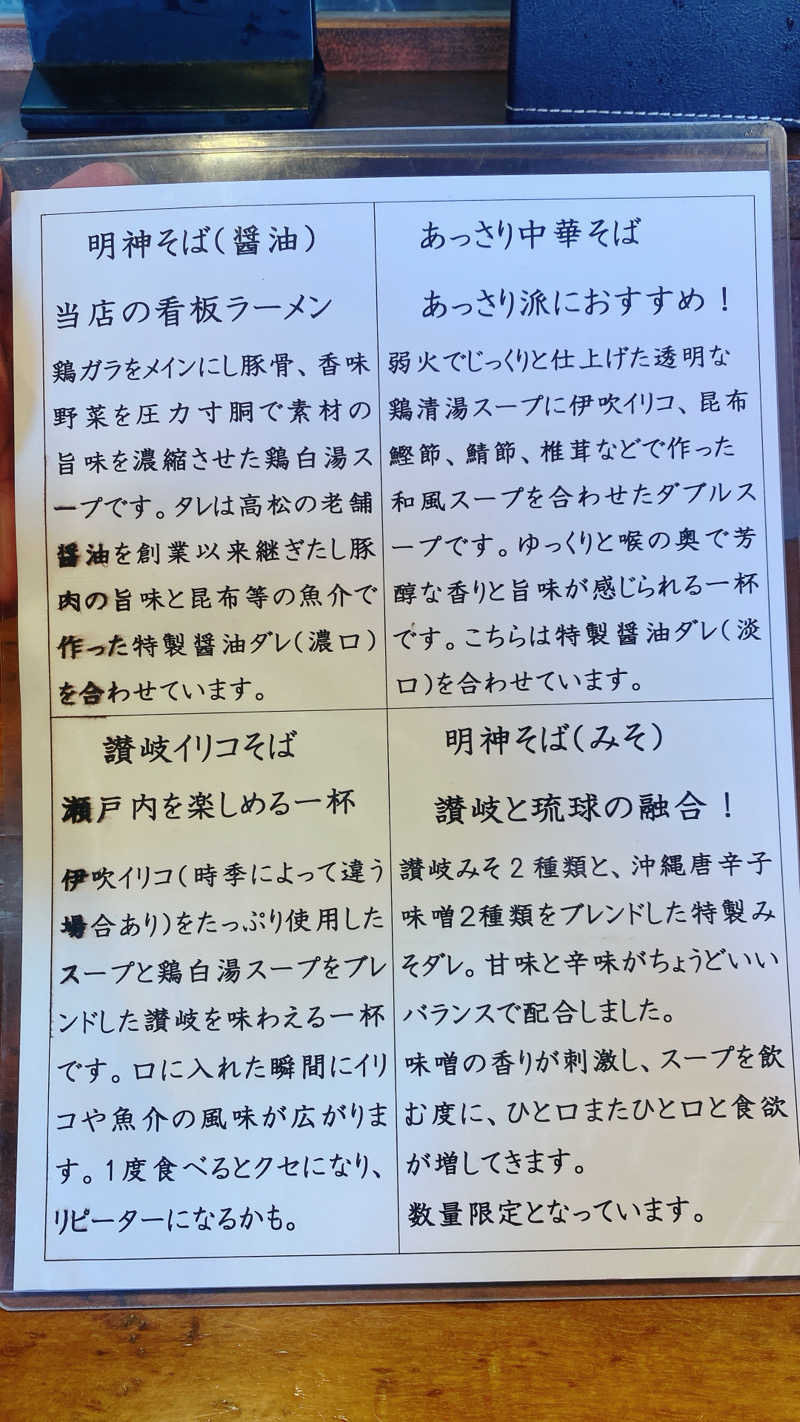 明神そば(醤油)
当店の看板ラーメン
鶏ガラをメインにし豚骨、香味
野菜を圧力寸胴で素材の
旨味を濃縮させた鶏白湯ス
ープです。タレは高松の老舗
醤油を創業以来継ぎたし豚
肉の旨味と昆布等の魚介で
作った特製醤油ダレ(濃口)
を合わせています。
あっさり中華そば
あっさり派におすすめ!
弱火でじっくりと仕上げた透明な
鶏清湯スープに伊吹イリコ、昆布
鰹節、鯖節、椎茸などで作った
和風スープを合わせたダブルス
ープです。ゆっくりと喉の奥で芳
醇な香りと旨味が感じられる一杯
です。こちらは特製醤油ダレ(淡
口)を合わせています。
讃岐イリコそば
瀬戸内を楽しめる一杯
伊吹イリコ(時季によって違う
場合あり)をたっぷり使用した
スープと鶏白湯スープをブレ
ンドした讃岐を味わえる一杯
です。口に入れた瞬間にイリ
コや魚介の風味が広がりま
す。1度食べるとクセになり、
リピーターになるかも。
明神そば(みそ)
讃岐と琉球の融合!
讃岐みそ2種類と、沖縄唐辛子
味噌2種類をブレンドした特製み
そダレ。甘味と辛味がちょうどいい
バランスで配合しました。
味噌の香りが刺激し、スープを飲
む度に、ひと口またひと口と食欲
が増してきます。
数量限定となっています。